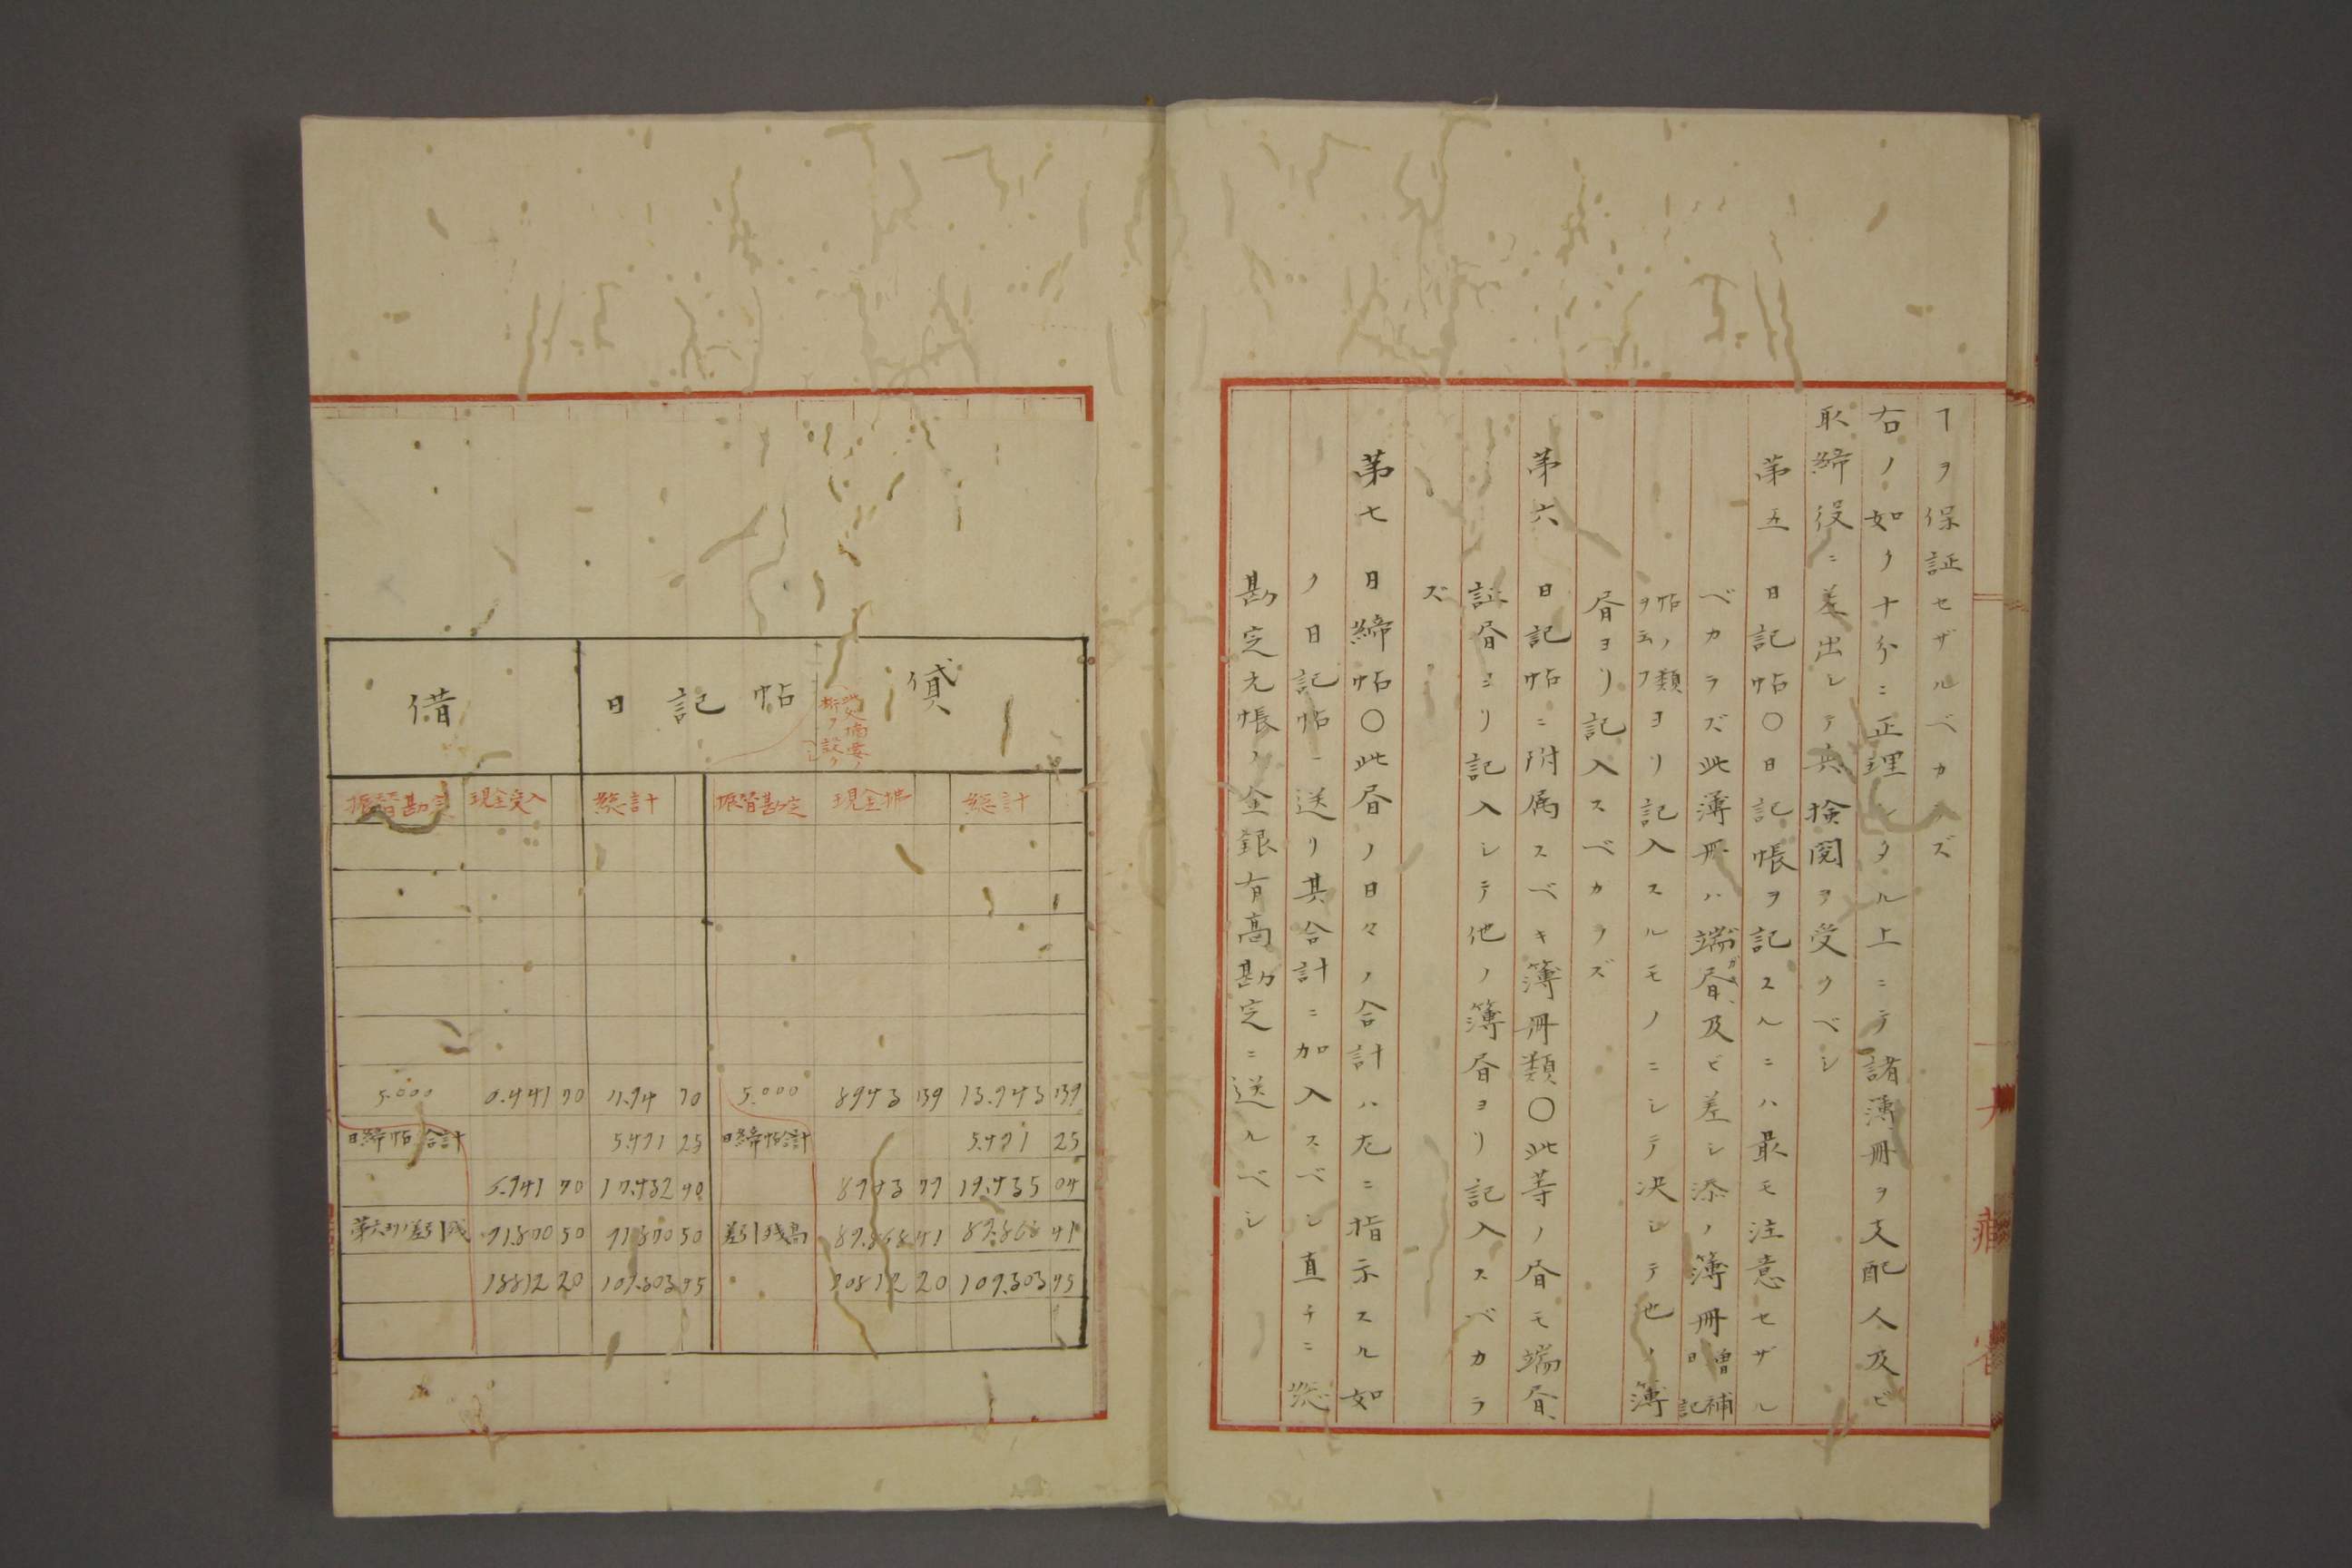 ヿヲ保証セザルベカラズ
右ノ如ク十分ニ正理シタル上ニテ諸簿冊ヲ支配人及ビ
取締役ニ差出シテ其検閲ヲ受クベシ
第五 日記帖〇日記帳ヲ記スルニハ最モ注意セザル
ベカラズ此簿冊ハ端書及ビ差シ添ノ簿冊増補日記
帖ノ類ヲ云フヨリ記入スルモノニシテ決シテ他ノ簿
書ヨリ記入スベカラズ
第六 日記帖ニ附属スベキ簿冊類〇此等ノ書モ端書、
証書ヨリ記入シテ他ノ簿書ヨリ記入スベカラ
ズ
第七 日締帖〇此書ノ日々ノ合計ハ左ニ指示スル如
ク日記帖ニ送リ其合計ニ加入スベシ直チニ総
勘定元帳ノ金銀有高勘定ニ送ルベシ
借 日記帖 貸
此処摘要ノ
欄ヲ設クベシ
振替勘定 現金受入 総計 振替勘定 現金拂 総計
5.000 70 70 5.000 8943 139 13.943 139
日締帖合計 5.491 25 日締帖合計 5.491 25
5.941 70 17.432 90 8943 79 19.435 04
91.870 50 91870 50 差引残高 89.868 41 89.868 41
18812 20 109.303 95 20812 20 109.303 95